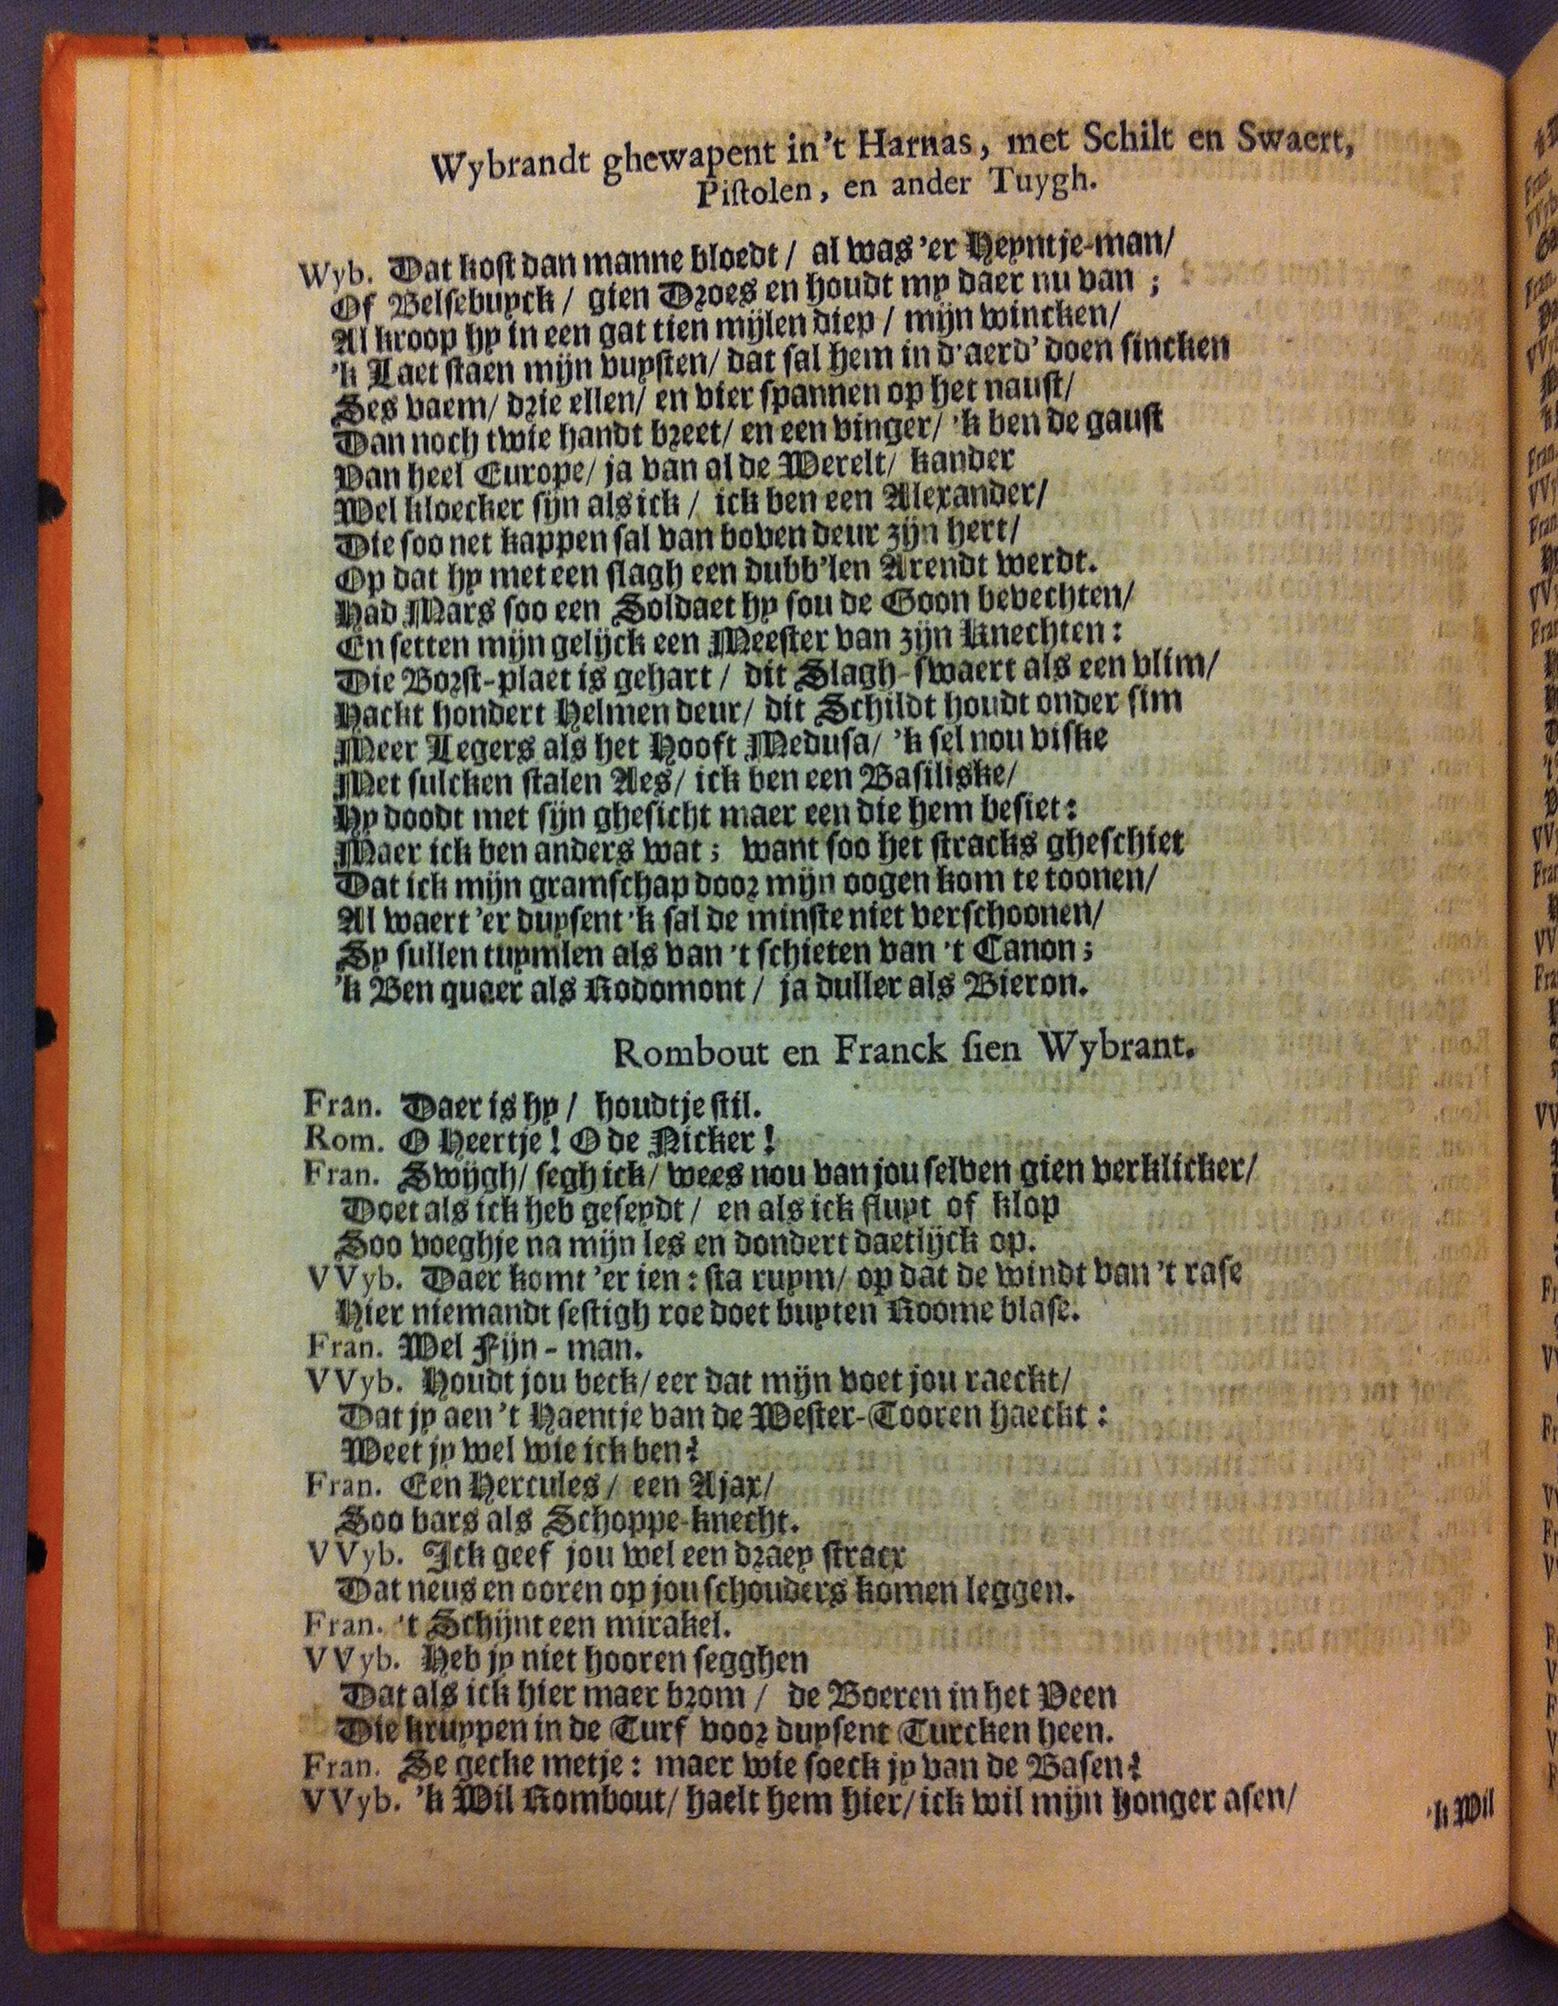 Wybrandt ghewapent in 't Harnas, met Schilt en Swaert,
Pistolen, en ander Tuygh.
Wyb. Dat kost dan manne bloedt / al was 'er Heyntje-man /
Of Belsebuyck / gien Droes en houdt my daer nu van ;
Al kroop hy in een gat tien mijlen diep / mijn wincken /
'k Laet staen mijn vuysten / dat sal hem in d'aerd' doen sincken
Ses vaem / drie ellen / en vier spannen op het naust /
Dan noch twie handt breet / en een vinger / 'k ben de gaust
Van heel Europe / ja van al de Werelt / kander
Wel kloecker sijn als ick / ick ben een Alexander /
Die soo net kappen sal van boven deur zijn hert /
Op dat hy met een slagh een dubb'len Arendt werdt.
Had Mars soo een Soldaet hy sou de Goon bevechten /
En setten mijn gelijck een Meester van zijn knechten :
Die Borst-plaet is gehart / dit Slagh-swaert als een vlim /
Hackt hondert Helmen deur / dit Schildt houdt onder sim
Meer Legers als het Hooft Medusa / 'k sel nou viske
Met sulcken stalen Aes / ick ben een Basiliske /
Hy doodt met sijn ghesicht maer een die hem besiet :
Maer ick ben anders wat ; want soo het stracks gheschiet
Dat ick mijn gramschap door mijn oogen kom te toonen /
Al waert 'er duysent 'k sal de minste niet verschoonen /
Sy sullen tuymlen als van 't schieten van 't Canon ;
'k Ben quaer als Rodomont / ja duller als Bieron.
Rombout en Franck sien Wybrant.
Fran. Daer is hy / houdtje stil.
Rom. O Heertje ! O de Nicker !
Fran. Swijgh / segh ick / wees nou van jou selven gien verklicker /
Doet als ick heb geseydt / en als ick fluyt of klop
Soo voeghje na mijn les en dondert daetlijck op.
VVyb. Daer komt 'er ien : sta ruym / op dat de windt van 't rase
Hier niemandt sestigh roe doet buyten Roome blase.
Fran. Wel Fijn - man.
VVyb. Houdt jou beck / eer dat mijn voet jou raeckt /
Dat jy aen 't Haentje van de Wester-Tooren haeckt :
Weet jy wel wie ick ben?
Fran. Een Hercules / een Ajax /
Soo bars als Schoppe-knecht.
VVyb. Ick geef jou wel een draey stracx
Dat neus en ooren op jou schouders komen leggen.
Fran. 't Schijnt een mirakel.
VVyb. Heb jy niet hooren segghen
Dat als ick hier maer brom / de Boeren in het Veen
Die kruypen in de Turf voor duysent Turcken heen.
Fran. Se gecke metje : maer wie soeck jy van de Basen?
VVyb. 'k Wil Rombout / haelt hem hier / ick wil mijn honger asen /
'k Wil